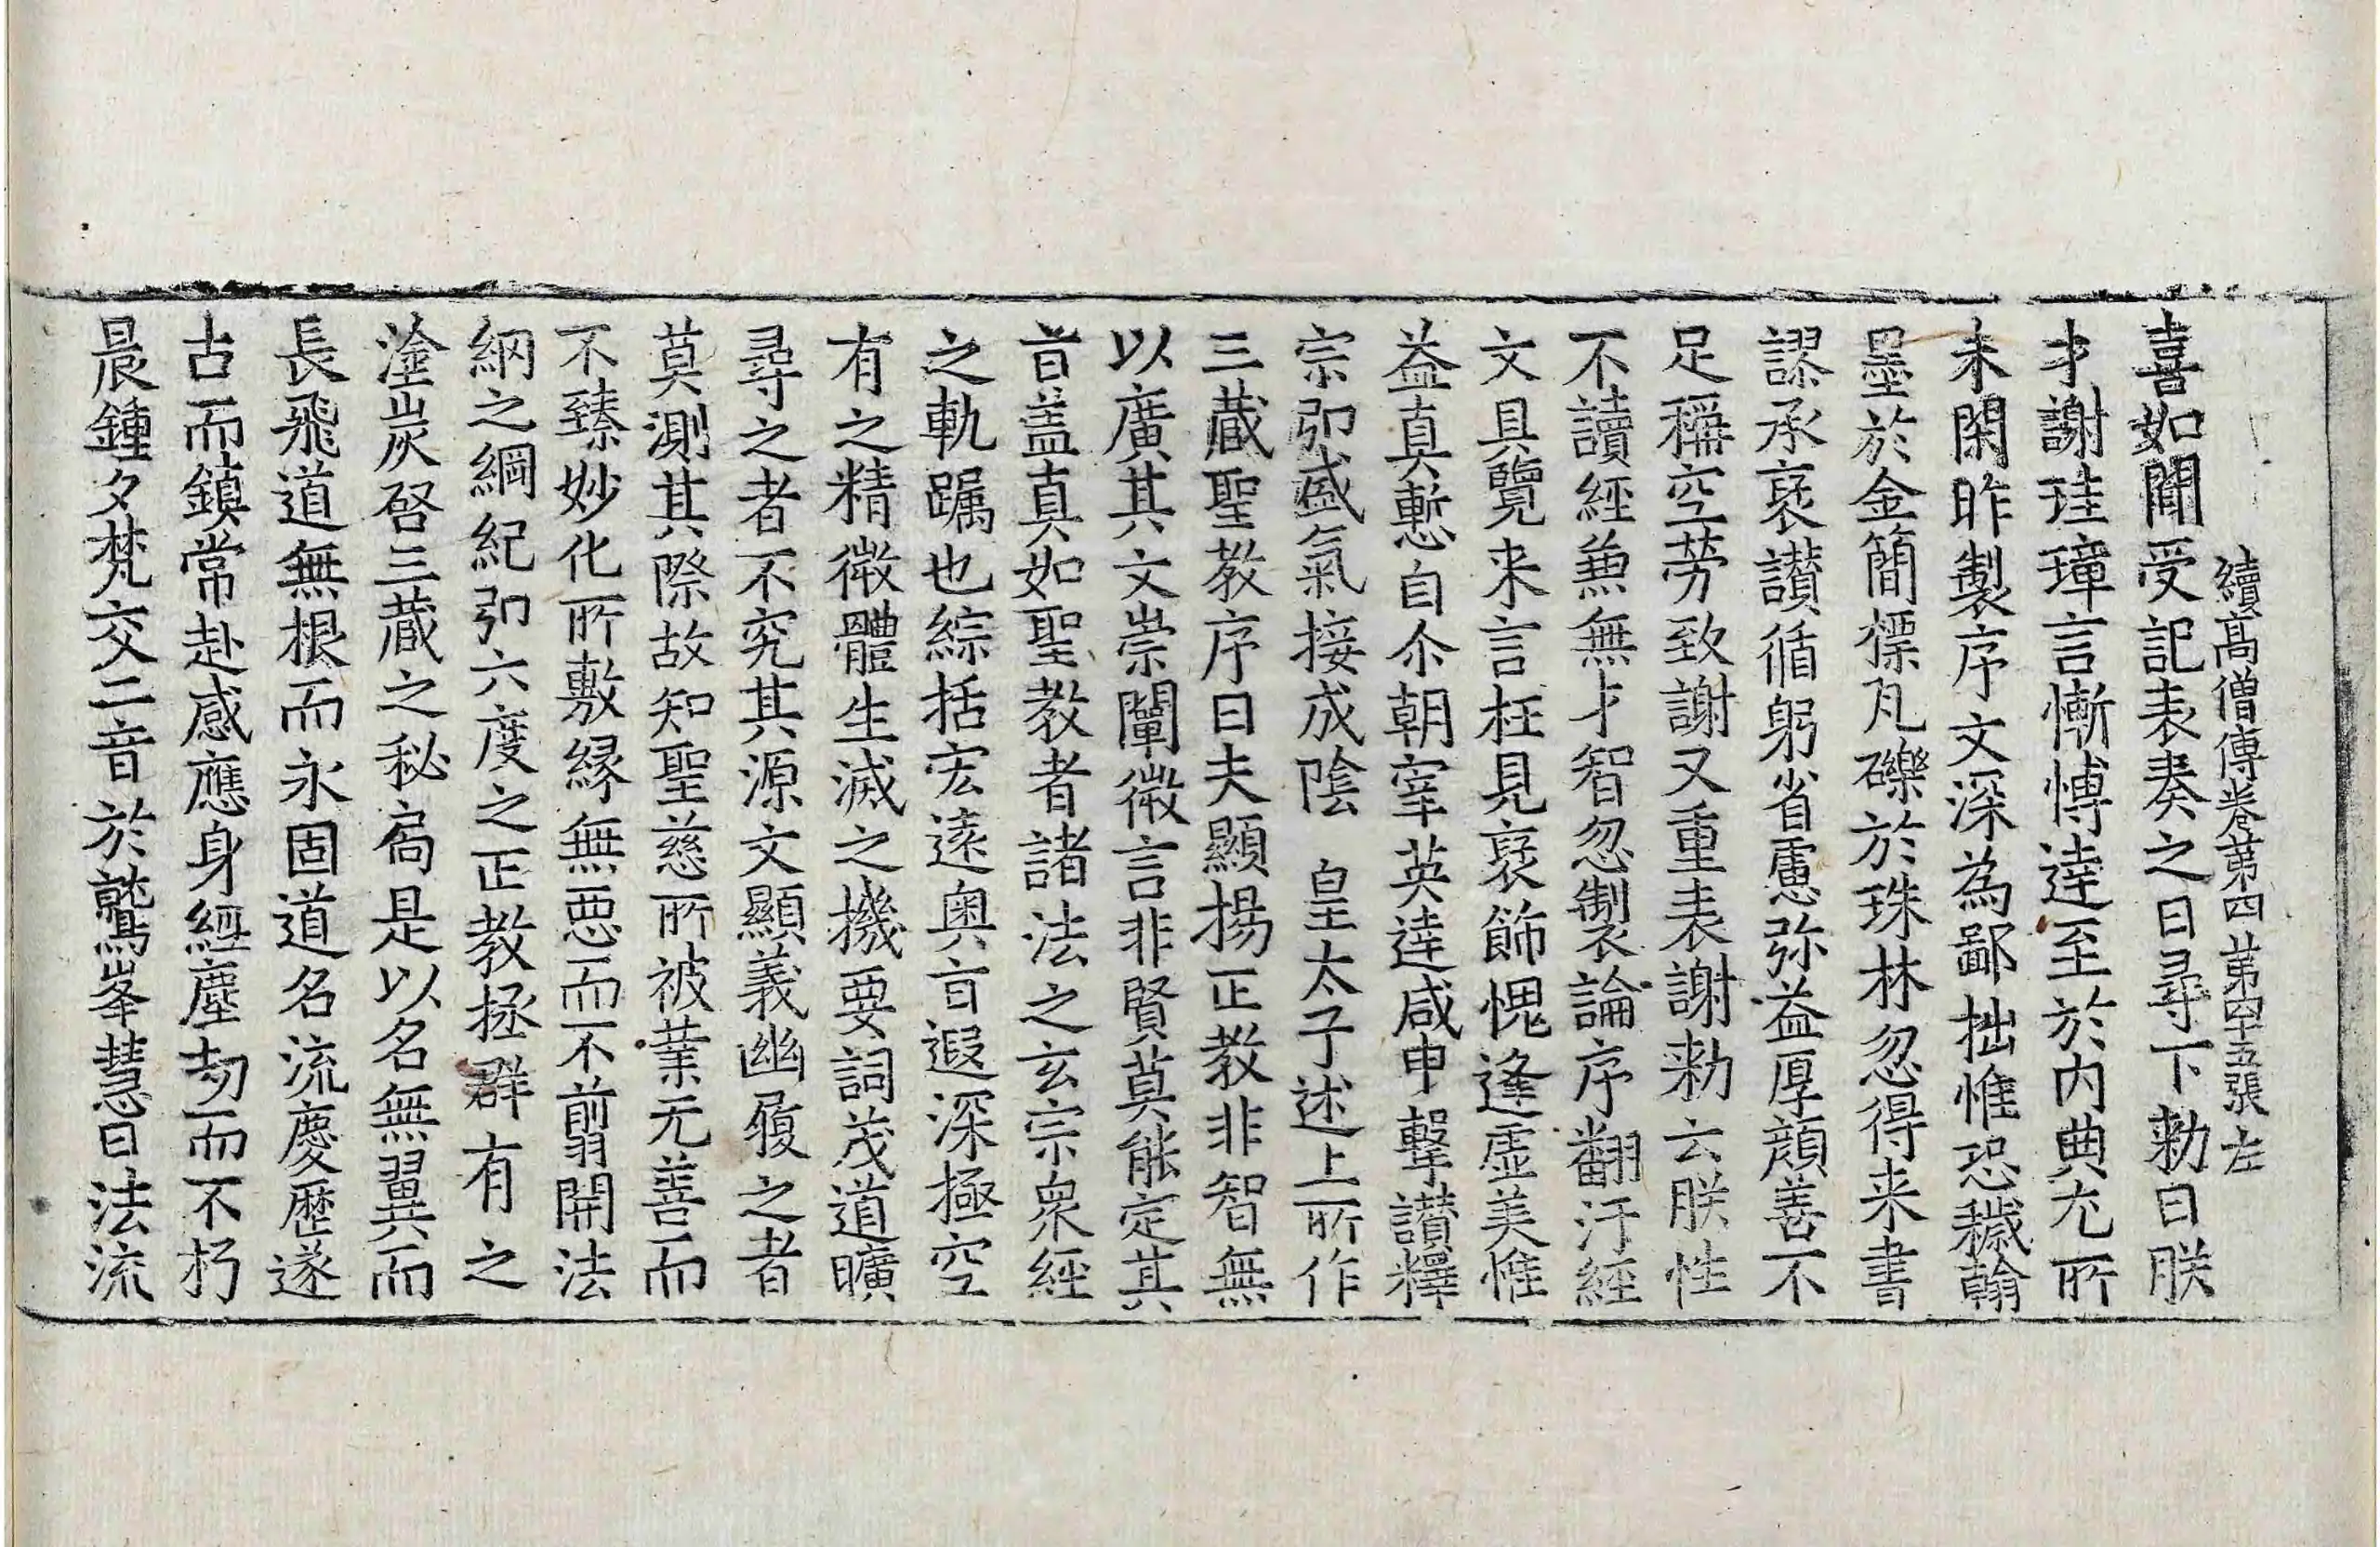 續高僧傳卷第四 第四十五張 左
喜如聞受記表奏之日尋下勑曰朕
才謝珪璋言慚博達至於内典尤所
未閑昨製序文深為鄙拙惟恐穢翰
墨於金簡標瓦礫於珠林忽得来書
謬承襃讃循躬省慮弥益厚顔善不
足稱空勞致謝又重表謝勑云朕性
不讀經兼無才智忽製論序翻汙經
文具覽来言枉見襃飾愧逢虛美惟
益真慙自尒朝宰英達咸申擊讃釋
宗弘盛氣接成陰 皇太子述上所作
三藏聖教序曰夫顯揚正教非智無
以廣其文崇闡微言非賢莫能定其
旨盖真如聖教者諸法之玄宗衆經
之軌躅也綜括宏遠奥旨遐深極空
有之精微體生滅之機要詞茂道曠
尋之者不究其源文顯義幽履之者
莫測其際故知聖慈所被業无善而
不臻妙化所敷縁無惡而不翦開法
網之綱紀弘六度之正教拯群有之
塗炭啓三藏之秘扃是以名無翼而
長飛道無根而永固道名流慶歷遂
古而鎮常赴感應身經塵劫而不朽
晨鍾夕梵交二音於鷲峯慧日法流